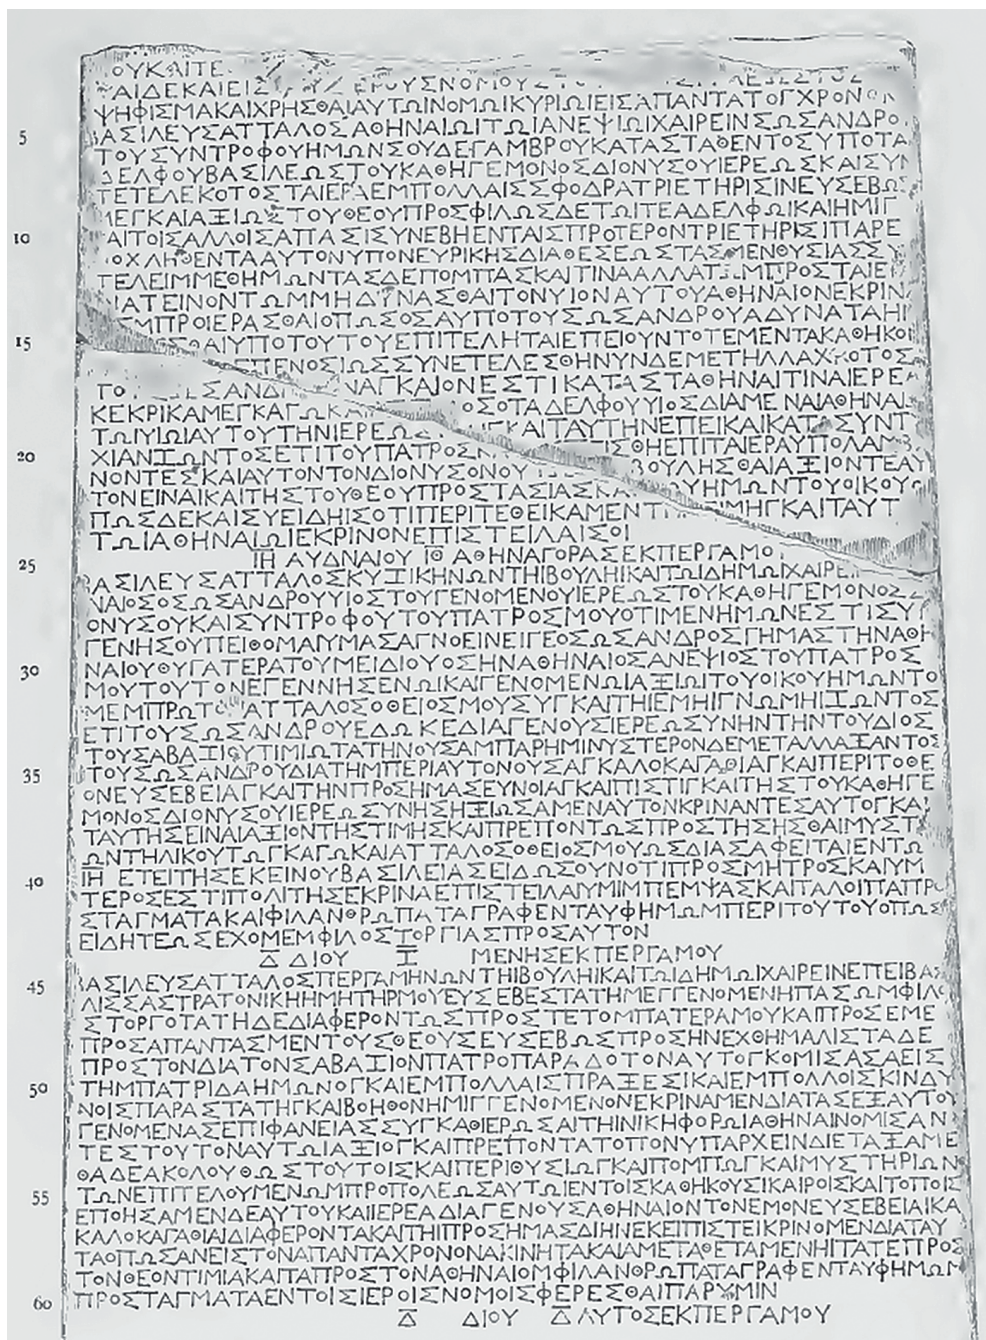 ΟΥΚΑΙΤΕ
ΑΙΔΕΚΑΙΕΙΣ ΕΡΟΥΣΝΟΜΟΥΣ
ΨΗΦΙΣΜΑΚΑΙΧΡΗΣΘΑΙΑΥΤΩΙΝΟΜΩΙΚΥΡΙΩΙΕΙΣΑΠΑΝΤΑΤΟΓΧΡΟΝΟΝ
5 ΒΑΣΙΛΕΥΣΑΤΤΑΛΟΣΑΘΗΝΑΙΩΙΤΩΙΑΝΕΨΙΩΙΧΑΙΡΕΙΝΣΩΣΑΝΔΡΟ
ΤΟΥΣΥΝΤΡΟΦΟΥΗΜΩΝΣΟΥΔΕΓΑΜΒΡΟΥΚΑΤΑΣΤΑΘΕΝΤΟΣΥΠΟΤΑ
ΔΕΛΦΟΥΒΑΣΙΛΕΩΣΤΟΥΚΑΘΗΓΕΜΟΝΟΣΔΙΟΝΥΣΟΥΙΕΡΕΩΣΚΑΙΣΥΝ
ΤΕΤΕΛΕΚΟΤΟΣΤΑΙΕΡΑΕΜΠΟΛΛΑΙΣΣΦΟΔΡΑΤΡΙΕΤΗΡΙΣΙΝΕΥΣΕΒΩΣ
ΜΕΓΚΑΙΑΞΙΩΣΤΟΥΘΕΟΥΠΡΟΣΦΙΛΩΣΔΕΤΩΙΤΕΑΔΕΛΦΩΙΚΑΙΗΜΙΓ
10 ΑΙΤΟΙΣΑΛΛΟΙΣΑΠΑΣΙΣΥΝΕΒΗΕΝΤΑΙΣΠΡΟΤΕΡΟΝΤΡΙΕΤΗΡΙΣΙΠΑΡΕ
ΟΧΛΗΘΕΝΤΑΑΥΤΟΝΥΠΟΝΕΥΡΙΚΗΣΔΙΑΘΕΣΕΩΣΤΑΣΜΕΝΘΥΣΙΑΣΣΥ
ΤΕΛΕΙΜΜΕΘΗΜΩΝΤΑΣΔΕΠΟΜΠΑΣΚΑΙΤΙΝΑΑΛΛΑΤΩΜΠΡΟΣΤΑΙΕΡ
ΑΤΕΙΝΟΝΤΩΜΜΗΔΥΝΑΣΘΑΙΤΟΝΥΙΟΝΑΥΤΟΥΑΘΗΝΑΙΟΝΕΚΡΙΝΑ
ΕΜΠΡΟΙΕΡΑΣΘΑΙΟΠΩΣΟΣΑΥΠΟΤΟΥΣΩΣΑΝΔΡΟΥΑΔΥΝΑΤΑΗΙ
15 ΣΘΑΙΥΠΟΤΟΥΤΟΥΕΠΙΤΕΛΗΤΑΙΕΠΕΙΟΥΝΤΟΤΕΜΕΝΤΑΚΑΘΗΚΟ
ΕΠΕΝΟΣΙΩΣΣΥΝΕΤΕΛΕΣΘΗΝΥΝΔΕΜΕΤΗΛΛΑΧΚΟΤΟΣ
ΤΟ ΣΑΝΔ ΝΑΓΚΑΙΟΝΕΣΤΙΚΑΤΑΣΤΑΘΗΝΑΙΤΙΝΑΙΕΡΕΑ
ΚΕΚΡΙΚΑΜΕΓΚΑΓΩΚΑΙ ΟΣΟΤΑΔΕΛΦΟΥΥΙΟΣΔΙΑΜΕΝΑΙΑΘΗΝΑΙ
ΤΩΙΥΙΩΙΑΥΤΟΥΤΗΝΙΕΡΕΩΣ ΓΚΑΙΤΑΥΤΗΝΕΠΕΙΚΑΙΚΑΤΑΣΥΝΤ
20 ΧΙΑΝΞΩΝΤΟΣΕΤΙΤΟΥΠΑΤΡΟΣ ΙΣΘΗΕΠΙΤΑΙΕΡΑΥΠΟΛΑΜΒ
ΝΟΝΤΕΣΚΑΙΑΥΤΟΝΤΟΝΔΙΟΝΥΣΟΝΟΥ ΒΟΥΛΗΣΘΑΙΑΞΙΟΝΤΕΑΥ
ΤΟΝΕΙΝΑΙΚΑΙΤΗΣΤΟΥΘΕΟΥΠΡΟΣΤΑΣΙΑΣΚΑ ΟΥΗΜΩΝΤΟΥΟΙΚΟΥΟ
ΠΩΣΔΕΚΑΙΣΥΕΙΔΗΙΣΟΤΙΠΕΡΙΤΕΘΕΙΚΑΜΕΝΤ ΙΜΗΓΚΑΙΤΑΥΤ
ΤΩΙΑΘΗΝΑΙΩΙΕΚΡΙΝΟΝΕΠΙΣΤΕΙΛΑΙΣΟΙ
25 ΙΗ ΑΥΔΝΑΙΟΥ ΙΘ ΑΘΗΝΑΓΟΡΑΣΕΚΠΕΡΓΑΜΟ
ΒΑΣΙΛΕΥΣΑΤΤΑΛΟΣΚΥΞΙΚΗΝΩΝΤΗΙΒΟΥΛΗΙΚΑΙΤΩΙΔΗΜΩΙΧΑΙΡΕΙΝ
ΝΑΙΟΣΟΣΩΣΑΝΔΡΟΥΥΙΟΣΤΟΥΓΕΝΟΜΕΝΟΥΙΕΡΕΩΣΤΟΥΚΑΘΗΓΕΜΟΝΟΣ
ΟΝΥΣΟΥΚΑΙΣΥΝΤΡΟΦΟΥΤΟΥΠΑΤΡΟΣΜΟΥΟΤΙΜΕΝΗΜΩΝΕΣΤΙΣΥΓ
ΓΕΝΗΣΟΥΠΕΙΘΟΜΑΙΥΜΑΣΑΓΝΟΕΙΝΕΙΓΕΟΣΩΣΑΝΔΡΟΣΓΗΜΑΣΤΗΝΑΘΗ
30 ΝΑΙΟΥΘΥΓΑΤΕΡΑΤΟΥΜΕΙΔΙΟΥΟΣΗΝΑΘΗΝΑΙΟΣΑΝΕΨΙΟΣΤΟΥΠΑΤΡΟΣ
ΜΟΥΤΟΥΤΟΝΕΓΕΝΝΗΣΕΝΩΙΚΑΙΓΕΝΟΜΕΝΩΙΑΞΙΩΙΤΟΥΟΙΚΟΥΗΜΩΝΤΟ
ΜΕΜΠΡΩΤΟ ΑΤΤΑΛΟΣΟΘΕΙΟΣΜΟΥΣΥΓΚΑΙΤΗΙΕΜΗΙΓΝΩΜΗΙΞΩΝΤΟΣ
ΕΤΙΤΟΥΣΩΣΑΝΔΡΟΥΕΔΩΚΕΔΙΑΓΕΝΟΥΣΙΕΡΕΩΣΥΝΗΝΤΗΝΤΟΥΔΙΟΣ
ΤΟΥΣΑΒΑΞΙΟΥΤΙΜΙΩΤΑΤΗΝΟΥΣΑΜΠΑΡΗΜΙΝΥΣΤΕΡΟΝΔΕΜΕΤΑΛΛΑΞΑΝΤΟΣ
35 ΤΟΥΣΩΣΑΝΔΡΟΥΔΙΑΤΗΜΠΕΡΙΑΥΤΟΝΟΥΣΑΓΚΑΛΟΚΑΓΑΘΙΑΓΚΑΙΠΕΡΙΤΟΘΕ
ΟΝΕΥΣΕΒΕΙΑΓΚΑΙΤΗΝΠΡΟΣΗΜΑΣΕΥΝΟΙΑΓΚΑΙΠΙΣΤΙΓΚΑΙΤΗΣΤΟΥΚΑΘΗΓΕ
ΜΟΝΟΣΔΙΟΝΥΣΟΥΙΕΡΕΩΣΥΝΗΣΗΞΙΩΣΑΜΕΝΑΥΤΟΝΚΡΙΝΑΝΤΕΣΑΥΤΟΓΚΑΙ
ΤΑΥΤΗΣΕΙΝΑΙΑΞΙΟΝΤΗΣΤΙΜΗΣΚΑΙΠΡΕΠΟΝΤΩΣΠΡΟΣΤΗΣΗΣΘΑΙΜΥΣΤ
ΩΝΤΗΛΙΚΟΥΤΩΓΚΑΓΩΚΑΙΑΤΤΑΛΟΣΟΘΕΙΟΣΜΟΥΩΣΔΙΑΣΑΦΕΙΤΑΙΕΝΤΩ
40 ΙΗ ΕΤΕΙΤΗΣΕΚΕΙΝΟΥΒΑΣΙΛΕΙΑΣΕΙΔΩΣΟΥΝΟΤΙΠΡΟΣΜΗΤΡΟΣΚΑΙΥΜ
ΤΕΡΟΣΕΣΤΙΠΟΛΙΤΗΣΕΚΡΙΝΑΕΠΙΣΤΕΙΛΑΙΥΜΙΜΠΕΜΨΑΣΚΑΙΤΑΛΟΙΠΑΠΡΟ
ΣΤΑΓΜΑΤΑΚΑΙΦΙΛΑΝΘΡΩΠΑΤΑΓΡΑΦΕΝΤΑΥΦΗΜΩΜΠΕΡΙΤΟΥΤΟΥΟΠΩΣ
ΕΙΔΗΤΕΩΣΕΧΟΜΕΜΦΙΛΟΣΤΟΡΓΙΑΣΠΡΟΣΑΥΤΟΝ
Δ ΔΙΟΥ Ξ ΜΕΝΗΣΕΚΠΕΡΓΑΜΟΥ
45 ΒΑΣΙΛΕΥΣΑΤΤΑΛΟΣΠΕΡΓΑΜΗΝΩΝΤΗΙΒΟΥΛΗΙΚΑΙΤΩΙΔΗΜΩΙΧΑΙΡΕΙΝΕΠΕΙΒΑΣ
ΛΙΣΣΑΣΤΡΑΤΟΝΙΚΗΗΜΗΤΗΡΜΟΥΕΥΣΕΒΕΣΤΑΤΗΜΕΓΓΕΝΟΜΕΝΗΠΑΣΩΜΦΙΛΟ
ΣΤΟΡΓΟΤΑΤΗΔΕΔΙΑΦΕΡΟΝΤΩΣΠΡΟΣΤΕΤΟΜΠΑΤΕΡΑΜΟΥΚΑΙΠΡΟΣΕΜΕ
ΠΡΟΣΑΠΑΝΤΑΣΜΕΝΤΟΥΣΘΕΟΥΣΕΥΣΕΒΩΣΠΡΟΣΗΝΕΧΘΗΜΑΛΙΣΤΑΔΕ
ΠΡΟΣΤΟΝΔΙΑΤΟΝΣΑΒΑΞΙΟΝΠΑΤΡΟΠΑΡΑΔΟΤΟΝΑΥΤΟΓΚΟΜΙΣΑΣΑΕΙΣ
50 ΤΗΜΠΑΤΡΙΔΑΗΜΩΝΟΓΚΑΙΕΜΠΟΛΛΑΙΣΠΡΑΞΕΣΙΚΑΙΕΜΠΟΛΛΟΙΣΚΙΝΔΥ
ΝΟΙΣΠΑΡΑΣΤΑΤΗΓΚΑΙΒΟΗΘΟΝΗΜΙΓΓΕΝΟΜΕΝΟΝΕΚΡΙΝΑΜΕΝΔΙΑΤΑΣΕΞΑΥΤΟΥ
ΓΕΝΟΜΕΝΑΣΕΠΙΦΑΝΕΙΑΣΣΥΓΚΑΘΙΕΡΩΣΑΙΤΗΙΝΙΚΗΦΟΡΩΙΑΘΗΝΑΙΝΟΜΙΣΑΝ
ΤΕΣΤΟΥΤΟΝΑΥΤΩΙΑΞΙΟΓΚΑΙΠΡΕΠΟΝΤΑΤΟΠΟΝΥΠΑΡΧΕΙΝΔΙΕΤΑΞΑΜΕ
ΘΑΔΕΑΚΟΛΟΥΘΩΣΤΟΥΤΟΙΣΚΑΙΠΕΡΙΘΥΣΙΩΓΚΑΙΠΟΜΠΩΓΚΑΙΜΥΣΤΗΡΙΩΝ
55 ΤΩΝΕΠΙΤΕΛΟΥΜΕΝΩΜΠΡΟΠΟΛΕΩΣΑΥΤΩΙΕΝΤΟΙΣΚΑΘΗΚΟΥΣΙΚΑΙΡΟΙΣΚΑΙΤΟΠΟΙΣ
ΕΠΟΗΣΑΜΕΝΔΕΑΥΤΟΥΚΑΙΙΕΡΕΑΔΙΑΓΕΝΟΥΣΑΘΗΝΑΙΟΝΤΟΝΕΜΟΝΕΥΣΕΒΕΙΑΙΚΑ
ΚΑΛΟΚΑΓΑΘΙΑΙΔΙΑΦΕΡΟΝΤΑΚΑΙΤΗΙΠΡΟΣΗΜΑΣΔΙΗΝΕΚΕΙΠΙΣΤΕΙΚΡΙΝΟΜΕΝΔΙΑΤΑΥ
ΤΑΟΠΩΣΑΝΕΙΣΤΟΝΑΠΑΝΤΑΧΡΟΝΟΝΑΚΙΝΗΤΑΚΑΙΑΜΕΤΑΘΕΤΑΜΕΝΗΙΤΑΤΕΠΡΟΣ
ΤΟΝΘΕΟΝΤΙΜΙΑΚΑΙΤΑΠΡΟΣΤΟΝΑΘΗΝΑΙΟΜΦΙΛΑΝΘΡΩΠΑΤΑΓΡΑΦΕΝΤΑΥΦΗΜΩΜ
60 ΠΡΟΣΤΑΓΜΑΤΑΕΝΤΟΙΣΙΕΡΟΙΣΝΟΜΟΙΣΦΕΡΕΣΘΑΙΠΑΡΥΜΙΝ
Δ ΔΙΟΥ Δ ΛΥΤΟΣΕΚΠΕΡΓΑΜΟΥ